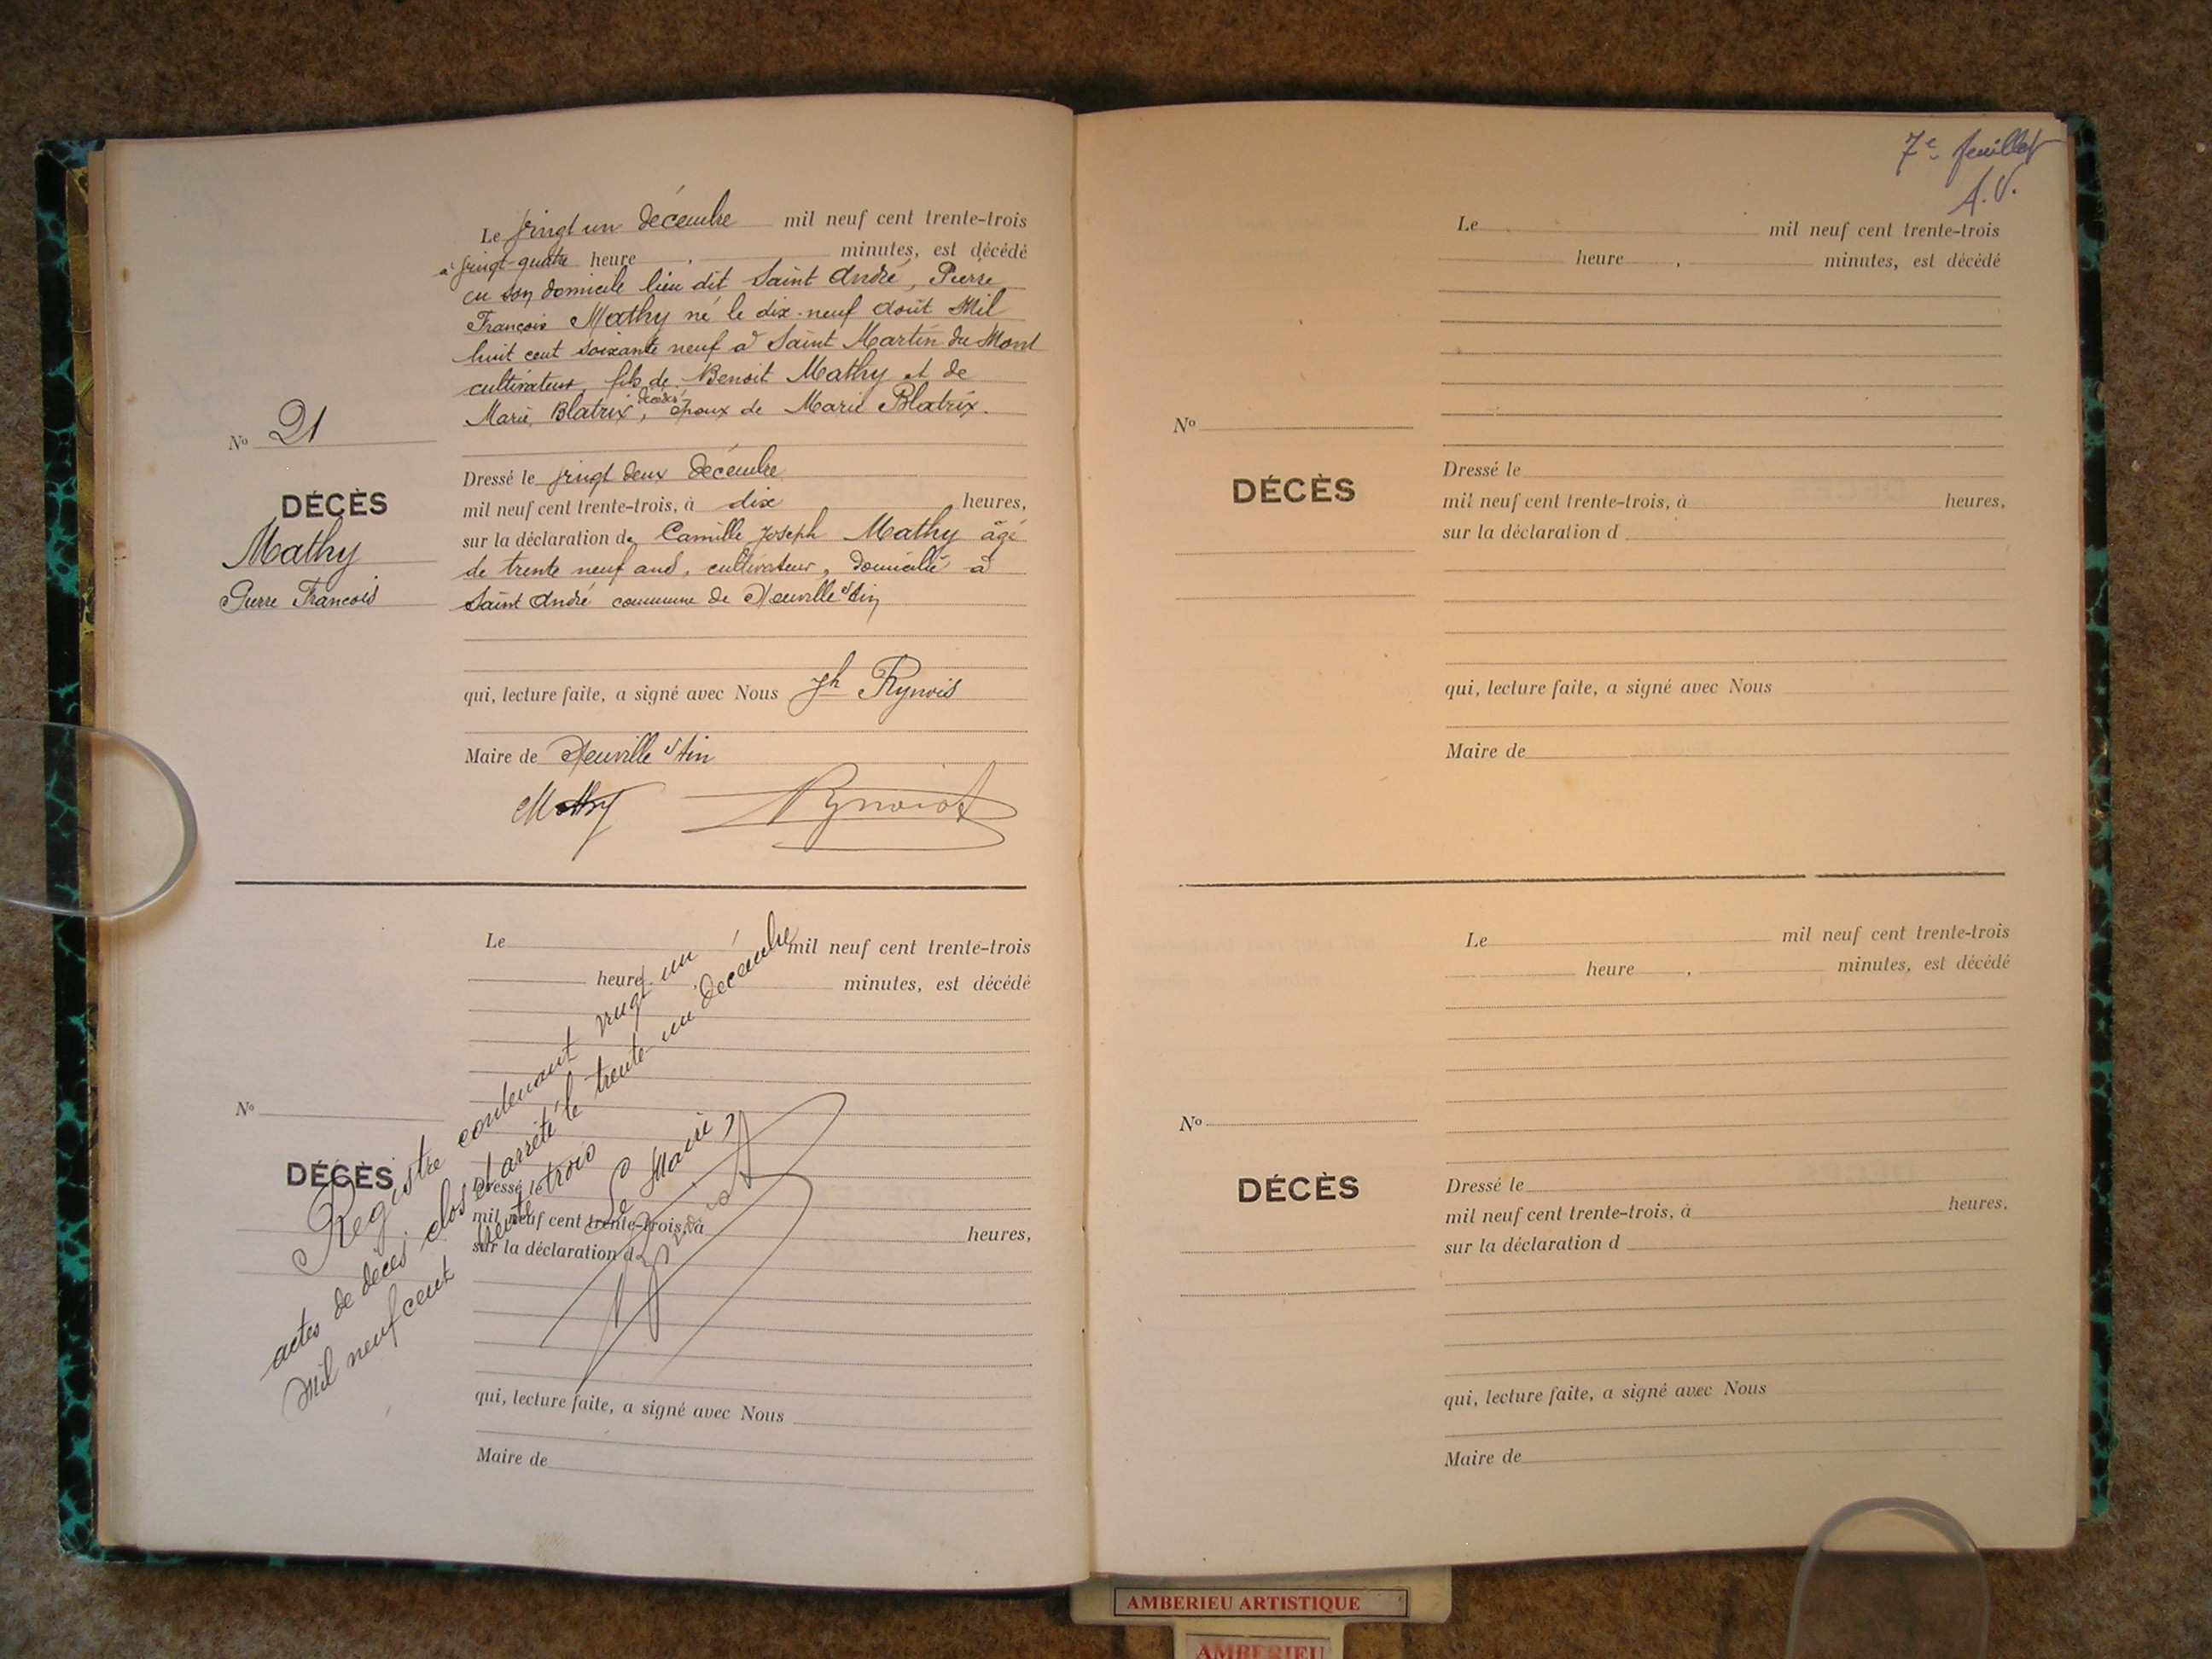 Le vingt un décembre mil neuf cent trente-trois
à vingt-quatre heure , minutes, est décédé
en son domicile lieu dit Saint André, Pierre
François Mathy né le dix-neuf août Mil
huit cent soixante neuf à Saint Martin du Mont
cultivateur, fils de Benoit Mathy et de
décédés
Marie Blatrix, époux de Marie Blatrix.
No 21
DÉCÈS
Mathy
Pierre François
Dressé le vingt deux décembre
mil neuf cent trente-trois, à dix heures,
sur la déclaration de Camille Joseph Mathy âgé
de trente neuf ans, cultivateur, domicilié à
Saint André commune de Neuville s/Ain
qui, lecture faite, a signé avec Nous Jh
Maire de Neuville s/Ain
Mathy
Le mil neuf cent trente-trois
heure , minutes, est décédé
No
DÉCÈS
Dressé le
mil neuf cent trente-trois, à heures,
sur la déclaration d
qui, lecture faite, a signé avec Nous
Maire de
Registre contenant vingt un
actes de décès clos et arrêté le trente-un décembre
Mil neuf cent trente trois
Le Maire
7e feuillet
A.V.
Le mil neuf cent trente-trois
heure , minutes, est décédé
No
DÉCÈS
Dressé le
mil neuf cent trente-trois, à heures,
sur la déclaration d
qui, lecture faite, a signé avec Nous
Maire de
Le mil neuf cent trente-trois
heure , minutes, est décédé
No
DÉCÈS
Dressé le
mil neuf cent trente-trois, à heures,
sur la déclaration d
qui, lecture faite, a signé avec Nous
Maire de
AMBERIEU ARTISTIQUE
AMBERIEU